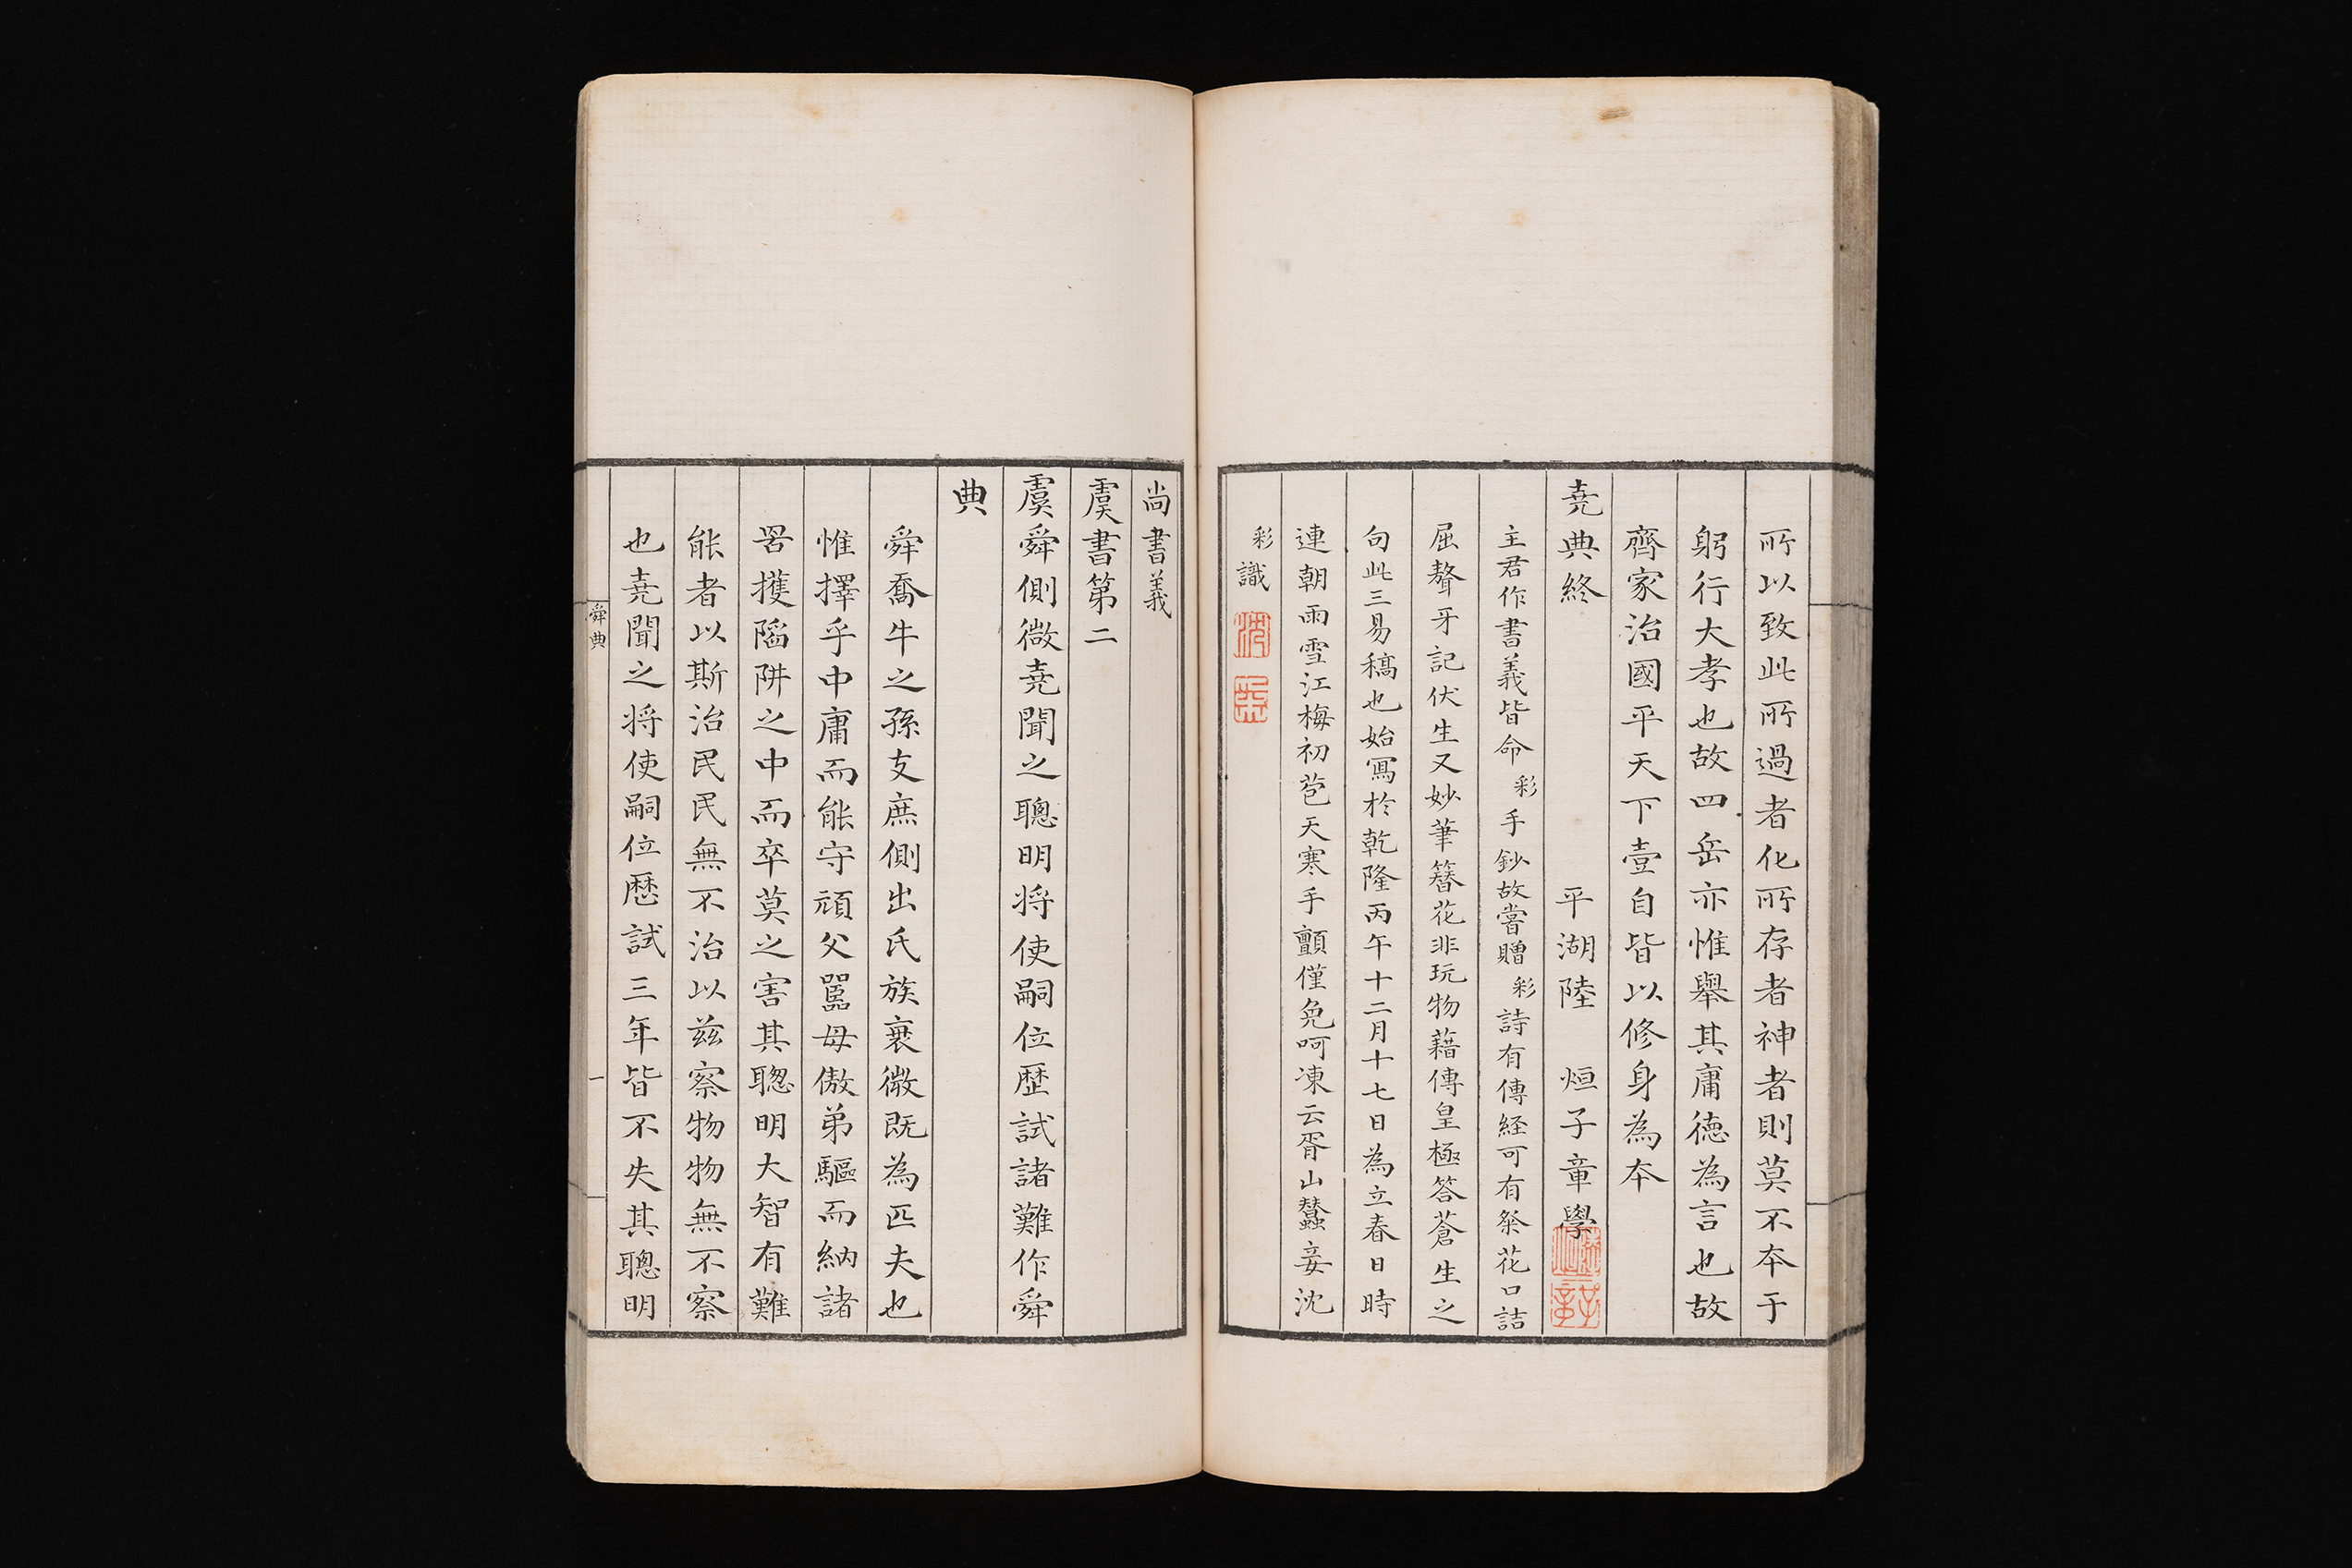 所以致此所過者化所存者神者則莫不本于
躬行大孝也故四岳亦惟舉其庸德為言也故
齊家治國平天下壹自皆以修身為本
堯典終 平湖陸 烜子章學
主君作書義皆命彩手鈔故嘗贈彩詩有傳經可有粲花口詰
屈聱牙記伏生又妙筆簪花非玩物藉傳皇極答蒼生之
句此三易稿也始寫於乾隆丙午十二月十七日為立春日時
連朝雨雪江梅初苞天寒手顫僅免呵凍云胥山蠶妾沈
彩識
尚書義
虞書第二
虞舜側微堯聞之聰明將使嗣位歷試諸難作舜
典
舜喬牛之孫支庶側出氏族衰微既為匹夫也
惟擇乎中庸而能守頑父嚚母傲弟驅而納諸
罟擭陷阱之中而卒莫之害其聰明大智有難
能者以斯治民民無不治以茲察物物無不察
也堯聞之將使嗣位歷試三年皆不失其聰明
舜典
一